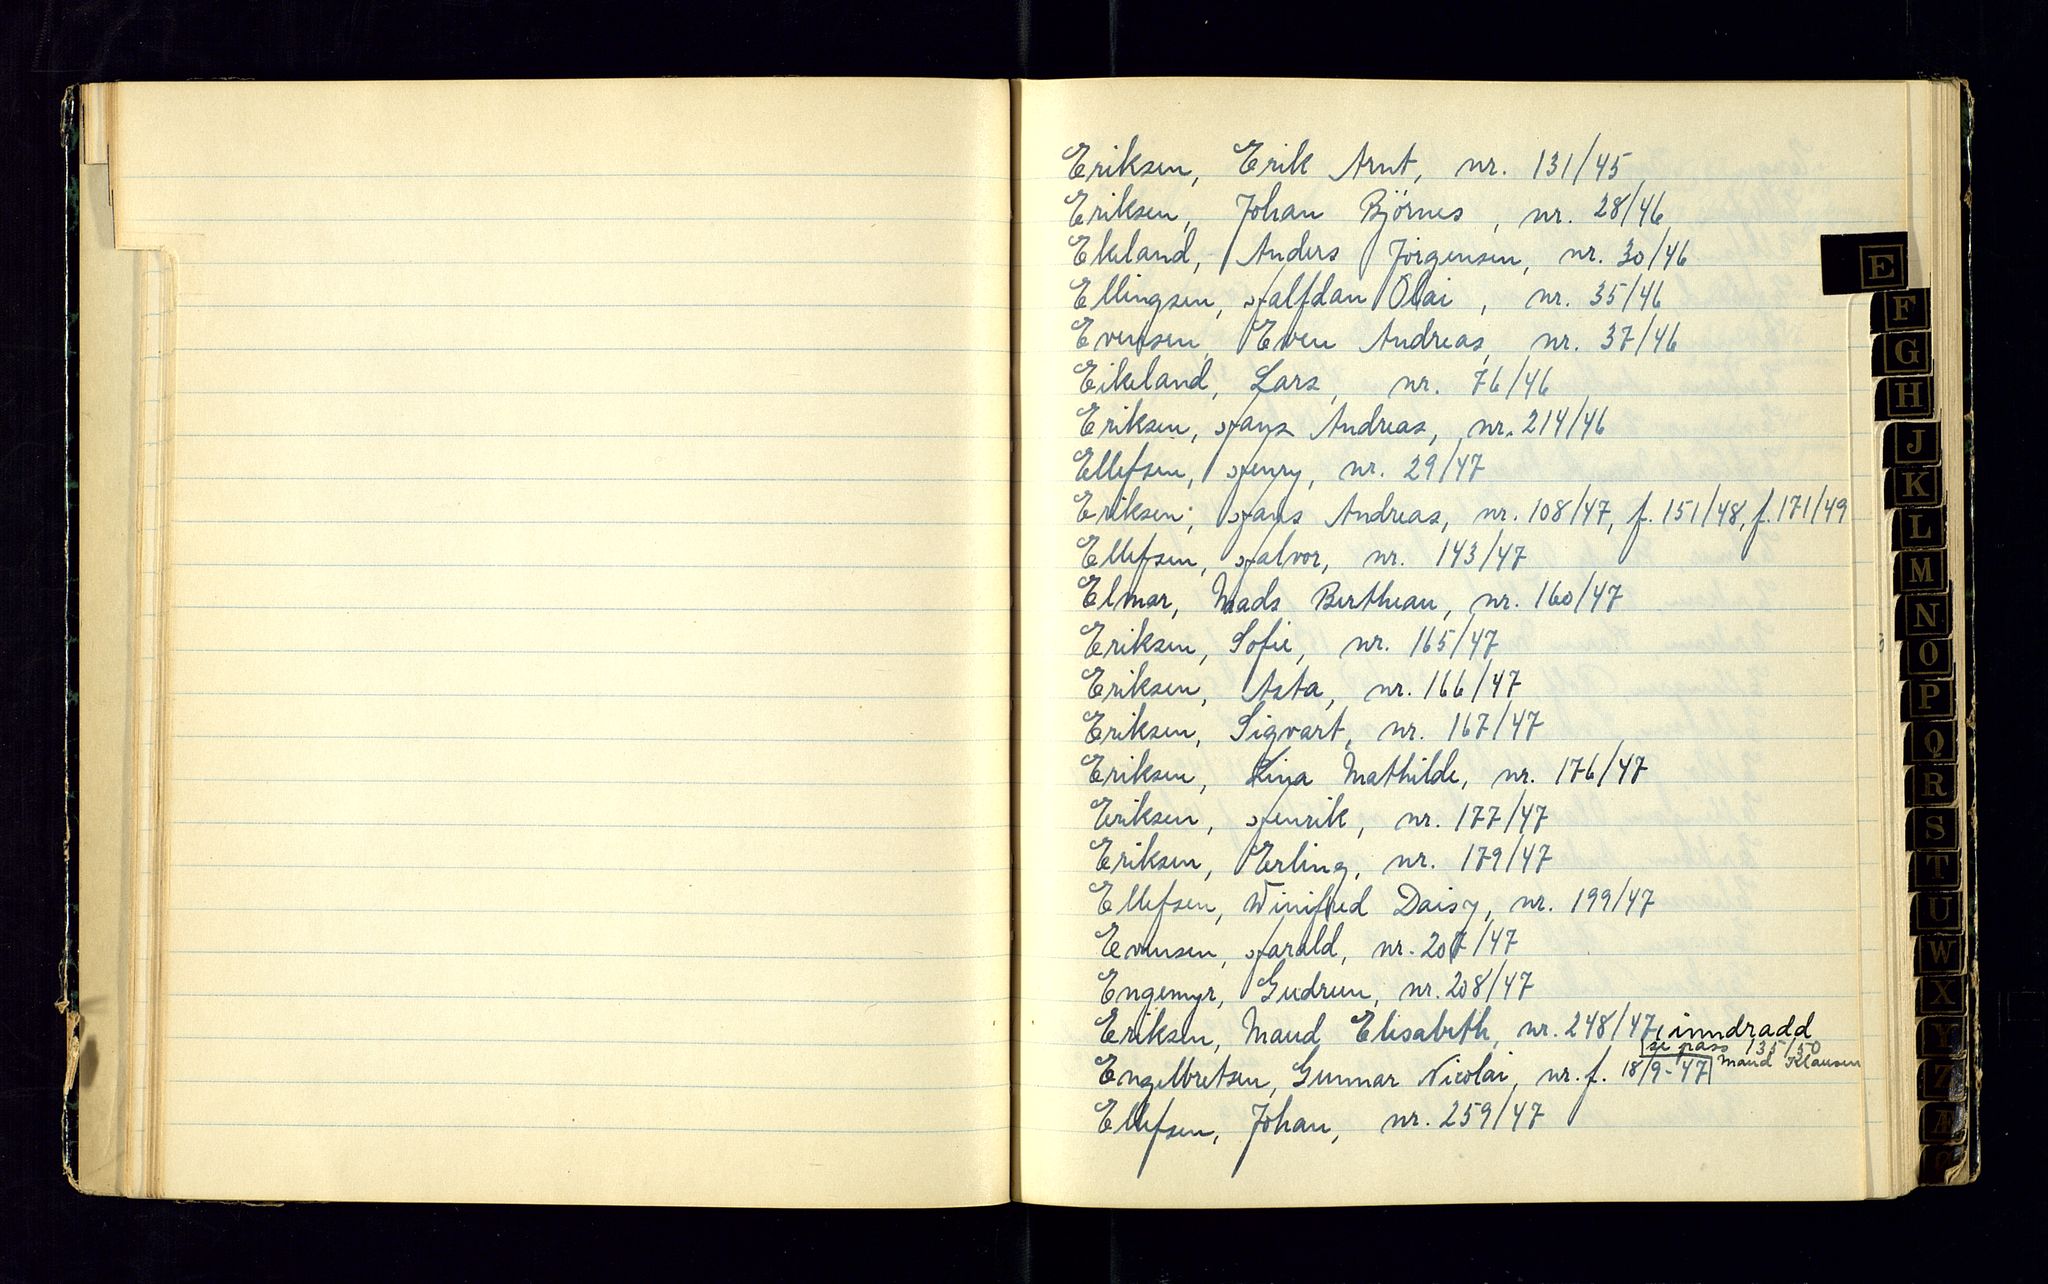 Eriksen, Erik Arnt, nr. 131/45
Eriksen, Johan Björnes, nr. 28/46
Ekeland, Anders Jörgensen, nr. 30/46
Ellingsen, Halfdan Olai, nr. 35/46
Evensen, Even Andreas, nr. 37/46
Eikeland, Lars, nr. 76/46
Eriksen, Hans Andreas, nr. 214/46
Ellefsen, Henry, nr. 29/47
Eriksen, Hans Andreas, nr. 108/47, f. 151/48, f. 171/49
Ellefsen, Halvor, nr. 143/47
Elmar, Mads Bertheau, nr. 160/47
Eriksen, Sofie, nr. 165/47
Eriksen, Asta, nr. 166/47
Eriksen, Sigvart, nr. 167/47
Eriksen, Lina Mathilde, nr. 176/47
Eriksen, Henrik, nr. 177/47
Eriksen, Erling, nr. 179/47
Ellefsen, Winifred Daisy, nr. 199/47
Evensen, Harald, nr. 207/47
Engemyr, Gudrun, nr. 208/47
Eriksen, Maud Elisabeth, nr. 248/47, inndradd
se pass 135/50
Maud Klausen
Engelbretsen, Gunnar Nicolai, nr. f. 18/9-47
Ellefsen, Johan, nr. 259/47
E
F
G
H
J
K
L
M
N
O
P
Q
R
S
T
U
W
X
Y
Z
Æ